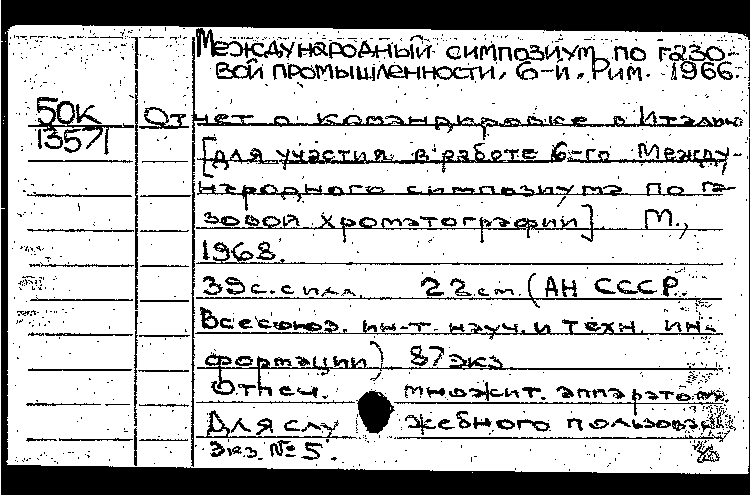 Международный симпозиум по газо-
вой промышленности, 6-й. Рим. 1966.
50К
13571
Отчет о командировке в Италию
[для участия в работе 6-го Между-
народного симпозиума по га-
зовой хроматографии]. М.,
1968.
39с. с илл. 22 см. (АН СССР.
Всесоюз. ин-т. науч. и техн. ин-
формации) 87 экз.
Отпеч. множит. аппаратом
Для служебного пользов
Экз. № 5.